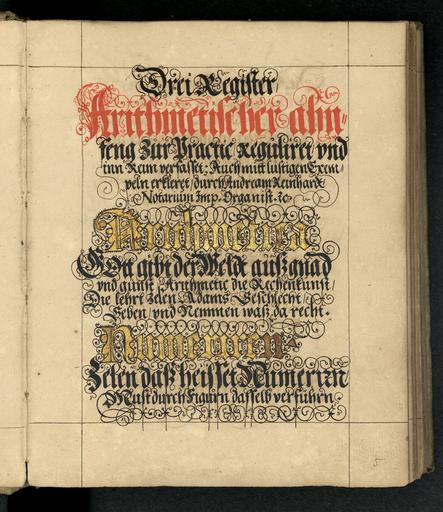 Drei Register
Arithmetischer ahn-
feng Zur Practic reguliret vnd
inn Reim verfasset: Auch mitt lustigen Exem-
peln erkleret / durch Andream Reinhard
Notarium Imp. Organist. ꝛc
Arithmetica
Gott gibt der Weldt auß gnad
vnd gunst / Arithmetic die Rechenkunst /
Die lehrt Zelen Adams Geschlecht /
Geben / vnd Nemmen waß da recht.
Numerirn
Zelen daß heisset Numerirn
Must durch Figurn dasselb verführn.
5